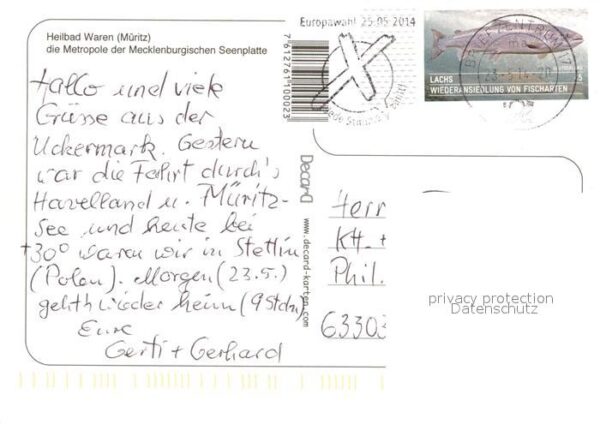 Heilbad Waren (Müritz)
die Metropole der Mecklenburgischen Seenplatte
Hallo und viele
Grüsse aus der
Uckermark. Gestern
war die Fahrt durch's
Havelland u. Müritz-
See und heute bei
+30° waren wir in Stettin
(Polen). Morgen (23.5.)
geht's wieder heim (9 Stdn)
Eure
Gerti + Gerhard
Europawahl 25.05.2014
7612761100023
LACHS
WIEDERANSIEDLUNG VON FISCHARTEN
BRIEFZENTRUM 17
Decard
www.decard-karten.com
Herr
KH.
Phil.
63303
privacy protection
Datenschutz